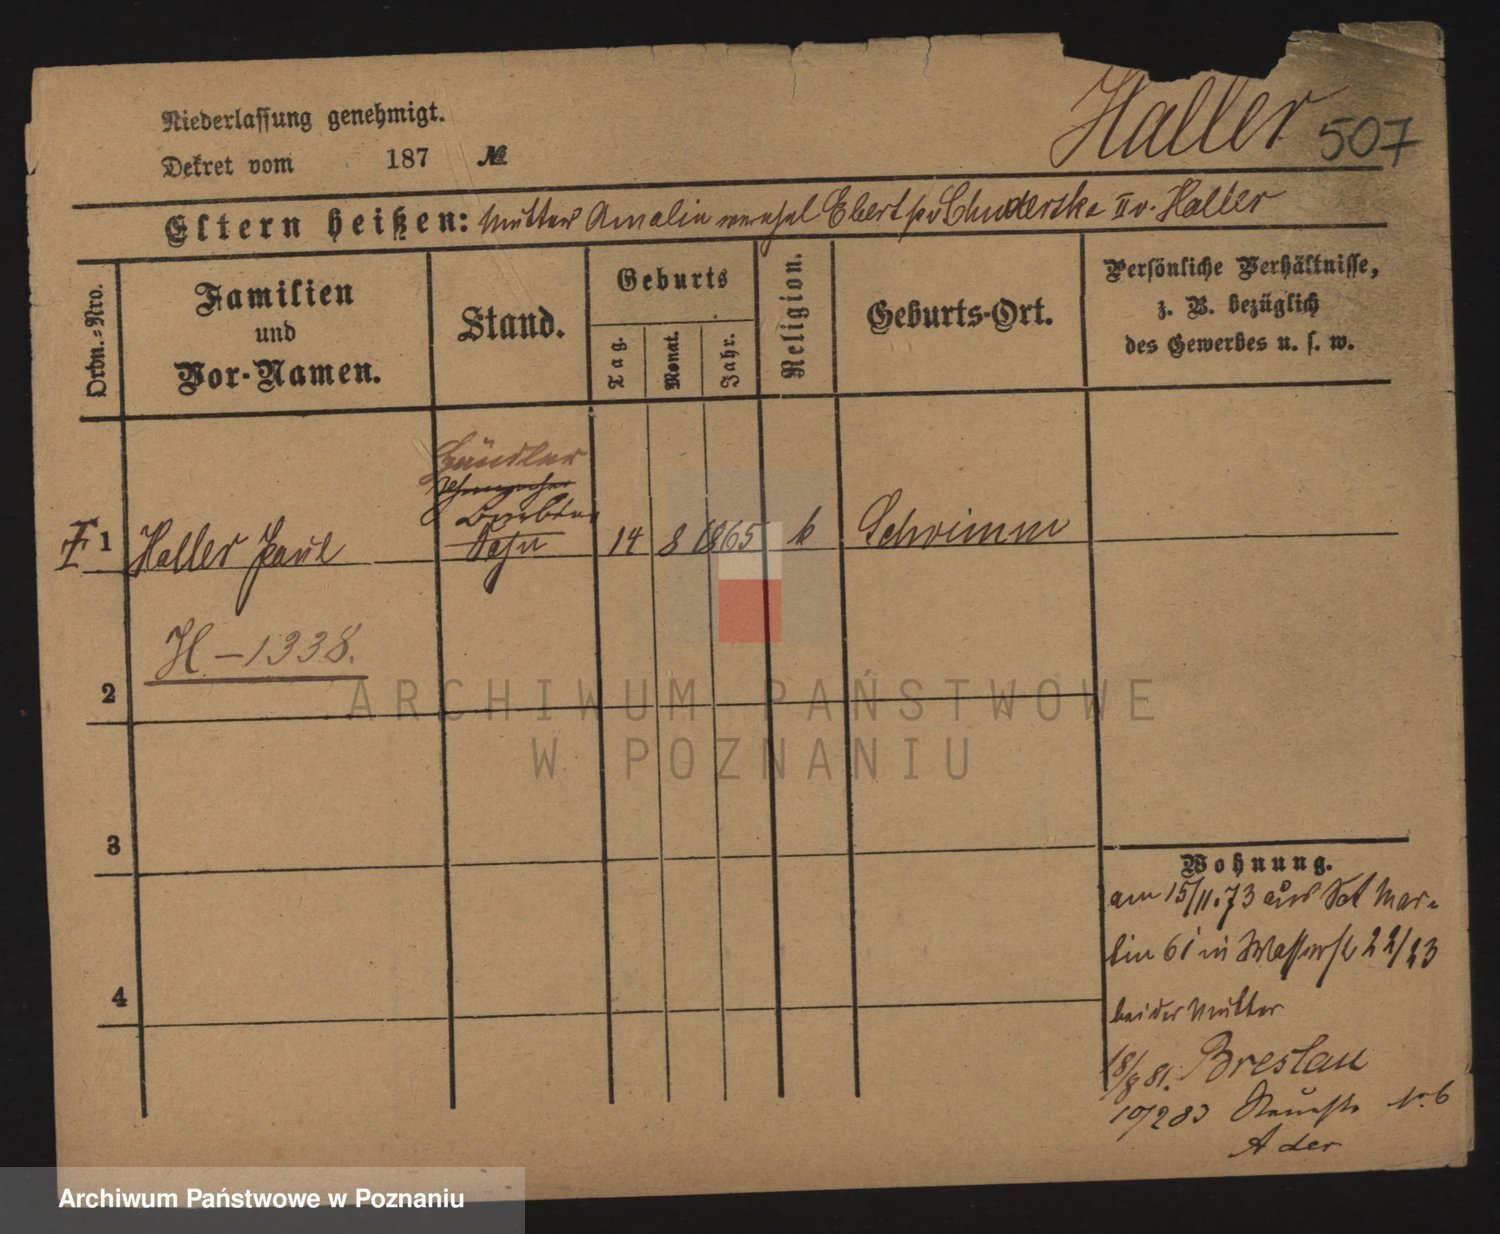 Haller 507
Niederlassung genehmigt.
Dekret vom 187 №
Eltern heißen: Mutter Amalie Ebert Chuderska II v. Haller
Ordn.-Nro.
Familien
und
Vor-Namen.
Stand.
Geburts
Tag.
Monat.
Jahr.
Religion.
Geburts-Ort.
Persönliche Verhältnisse,
z. B. bezüglich
des Gewerbes u. s. w.
Händler
1 Haller Paul Sohn 14 8 1865 k Schrimm
H-1338.
2
3
4
Wohnung.
am 15/11.73 aus Sct Mar-
tin 61 in Wasserstr 22/23
bei der Mutter
18/8 81. Breslau
10/2 83 No 6
Ader
ARCHIWUM PAŃSTWOWE
W POZNANIU
Archiwum Państwowe w Poznaniu